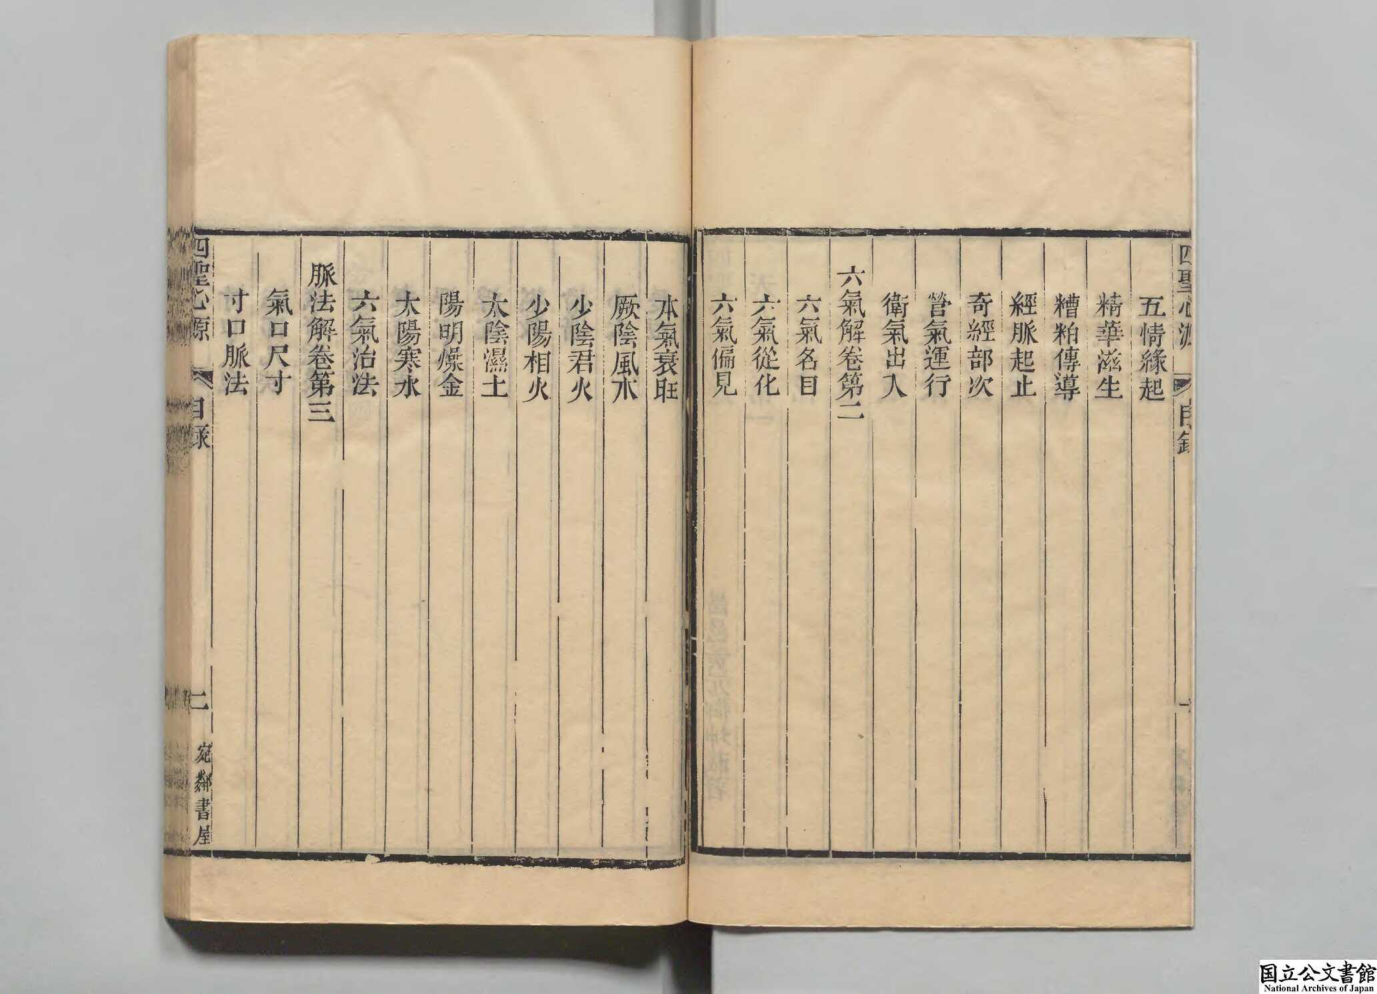 四聖心源
目錄
五情緣起
精華滋生
糟粕傳導
經脈起止
奇經部次
營氣運行
衛氣出入
六氣解卷第二
六氣名目
六氣從化
六氣偏見
本氣衰旺
厥陰風木
少陰君火
少陽相火
太陰濕土
陽明燥金
太陽寒水
六氣治法
脈法解卷第三
氣口尺寸
寸口脈法
四聖心源
目錄
二
宛鄰書屋
国立公文書館
National Archives of Japan